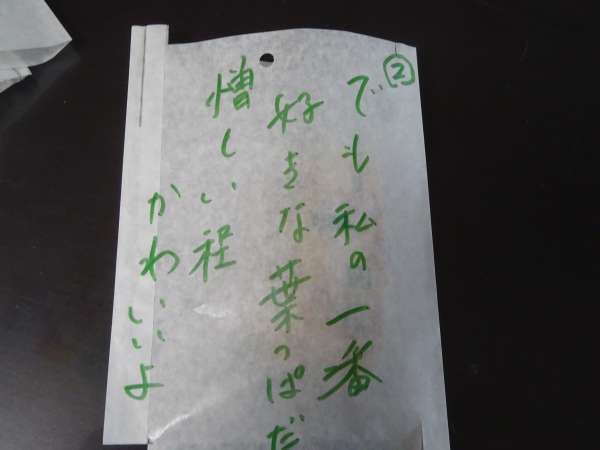 ②
でも私の一番
好きな葉っぱだ
憎しい程
かわいいよ